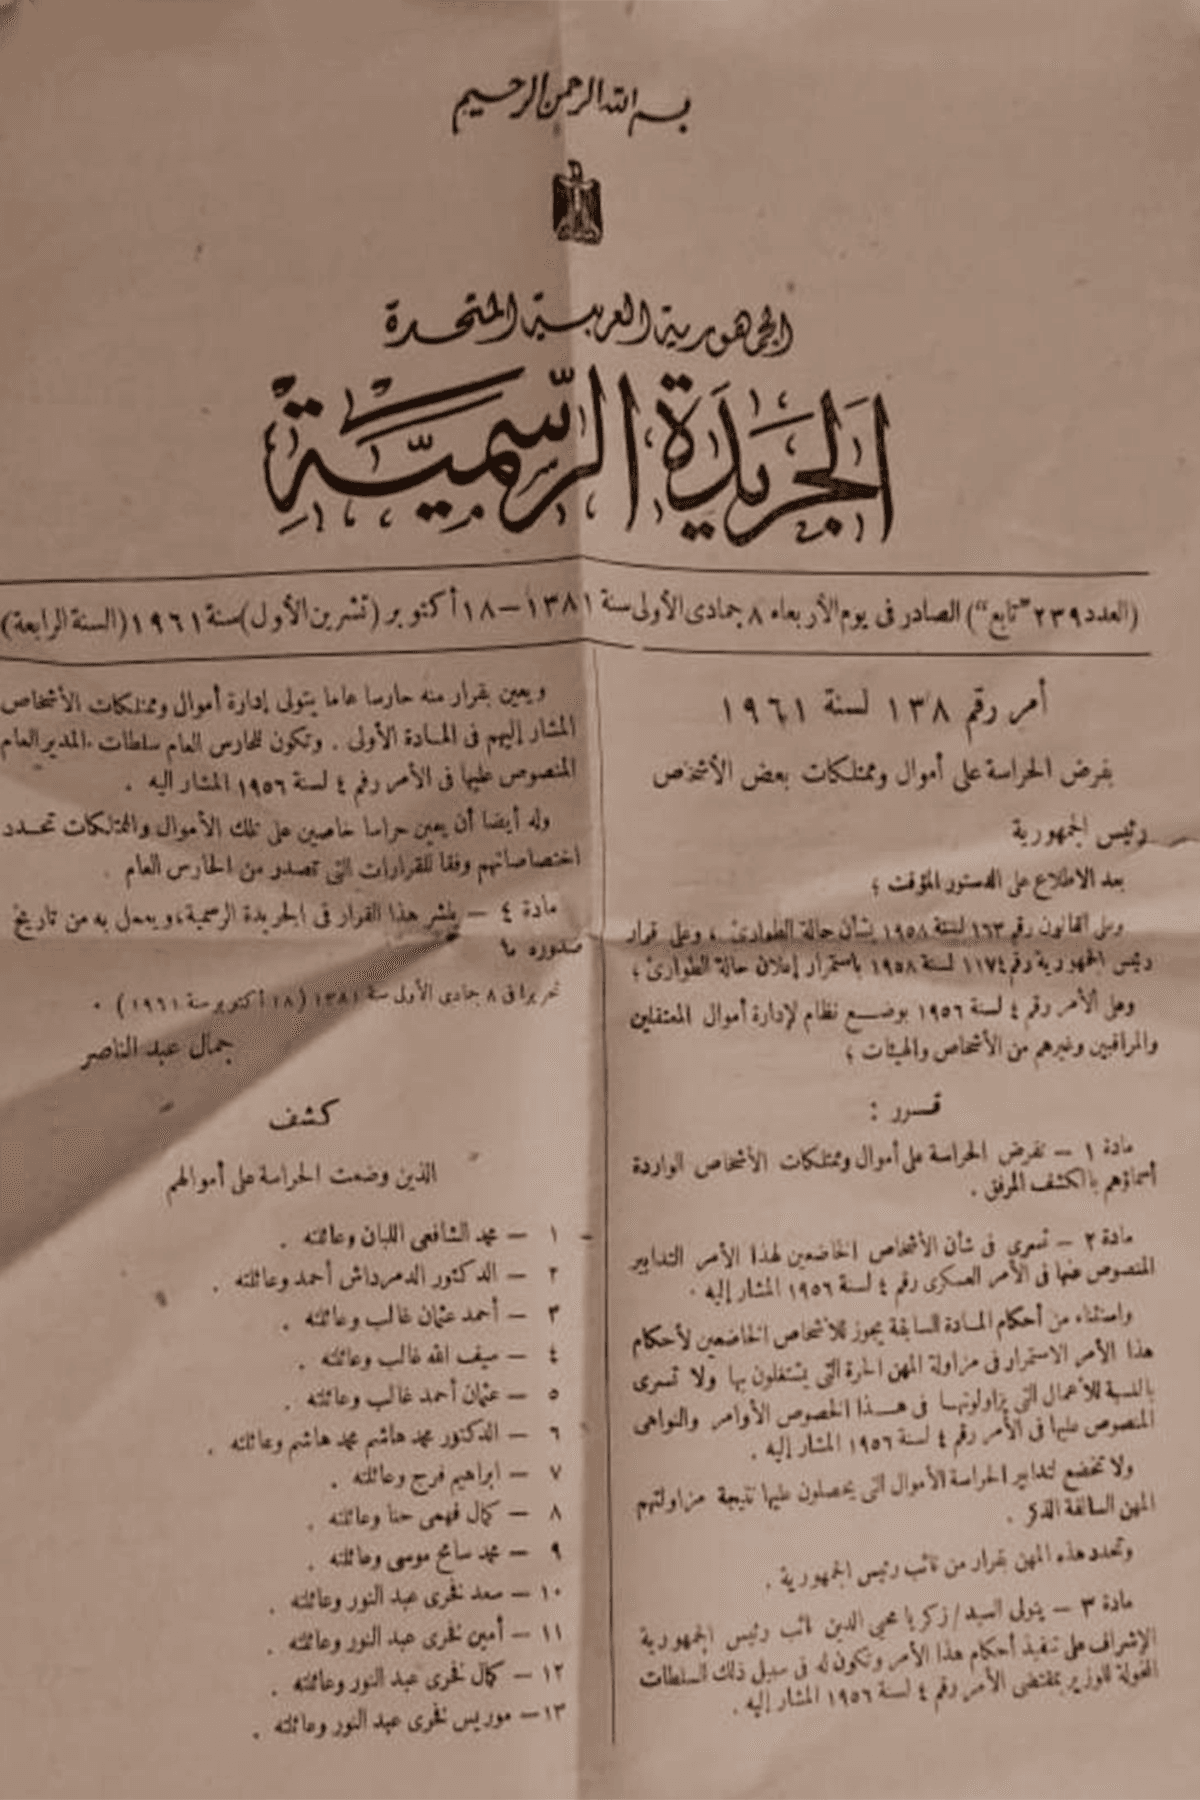 بسم الله الرحمن الرحيم
الجمهورية العربية المتحدة
الجَريدَة الرّسميّة
(العدد ٢٣٩ "تابع") الصادر فى يوم الأربعاء ٨ جمادى الأولى سنة ١٣٨١ – ١٨ أكتوبر (تشرين الأول) سنة ١٩٦١ (السنة الرابعة)
أمر رقم ١٣٨ لسنة ١٩٦١
بفرض الحراسة على أموال وممتلكات بعض الأشخاص
رئيس الجمهورية
بعد الاطلاع على الدستور المؤقت ؛
وعلى القانون رقم ١٦٣ لسنة ١٩٥٨ بشأن حالة الطوارئ ، وعلى قرار
رئيس الجمهورية رقم ١١٧٤ لسنة ١٩٥٨ باستمرار إعلان حالة الطوارئ ؛
وعلى الأمر رقم ٤ لسنة ١٩٥٦ بوضع نظام لإدارة أموال المعتقلين
والمراقبين وغيرهم من الأشخاص والهيئات ؛
قرر :
مادة ١ – تفرض الحراسة على أموال وممتلكات الأشخاص الواردة
أسماؤهم بالكشف المرفق .
مادة ٢ – تسرى فى شأن الأشخاص الخاضعين لهذا الأمر التدابير
المنصوص عنها فى الأمر العسكرى رقم ٤ لسنة ١٩٥٦ المشار إليه .
واستثناء من أحكام المادة السابقة يجوز للأشخاص الخاضعين لأحكام
هذا الأمر الاستمرار فى مزاولة المهن الحرة التى يشتغلون بها ولا تسرى
بالنسبة للأعمال التى يزاولونها فى هذا الخصوص الأوامر والنواهى
المنصوص عليها فى الأمر رقم ٤ لسنة ١٩٥٦ المشار إليه .
ولا تخضع لتدابير الحراسة الأموال التى يحصلون عليها نتيجة مزاولتهم
المهن السالفة الذكر .
وتحدد هذه المهن بقرار من نائب رئيس الجمهورية .
مادة ٣ – يتولى السيد/ زكريا محيى الدين نائب رئيس الجمهورية
الإشراف على تنفيذ أحكام هذا الأمر وتكون له فى سبيل ذلك السلطات
المخولة للوزير بمقتضى الأمر رقم ٤ لسنة ١٩٥٦ المشار إليه .
ويعين بقرار منه حارسا عاما يتولى إدارة أموال وممتلكات الأشخاص
المشار إليهم فى المادة الأولى . وتكون للحارس العام سلطات المدير العام
المنصوص عليها فى الأمر رقم ٤ لسنة ١٩٥٦ المشار اليه .
وله أيضا أن يعين حراسا خاصين على تلك الأموال والممتلكات تحدد
اختصاصاتهم وفقا للقرارات التى تصدر من الحارس العام .
مادة ٤ – ينشر هذا القرار فى الجريدة الرسمية، ويعمل به من تاريخ
صدوره
تحريرا فى ٨ جمادى الأولى سنة ١٣٨١ (١٨ أكتوبر سنة ١٩٦١) .
جمال عبد الناصر
كشف
الذين وضعت الحراسة على أموالهم
١ – محمد الشافعى اللبان وعائلته .
٢ – الدكتور الدمرداش أحمد وعائلته .
٣ – أحمد عثمان غالب وعائلته .
٤ – سيف الله غالب وعائلته .
٥ – عثمان أحمد غالب وعائلته .
٦ – الدكتور محمد هاشم محمد هاشم وعائلته .
٧ – ابراهيم فرج وعائلته .
٨ – كمال فهمى حنا وعائلته .
٩ – محمد سامح موسى وعائلته .
١٠ – سعد فخرى عبد النور وعائلته .
١١ – أمين فخرى عبد النور وعائلته .
١٢ – كمال فخرى عبد النور وعائلته .
١٣ – موريس فخرى عبد النور وعائلته .